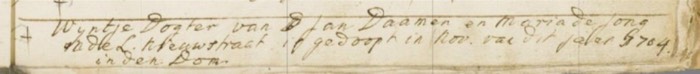 Wyntje Dogter van D Jan Daamen en Maria de Jong
in de L. Nieuwstraat is gedoopt in Nov. van dit jaar 1704.
in den Dom.